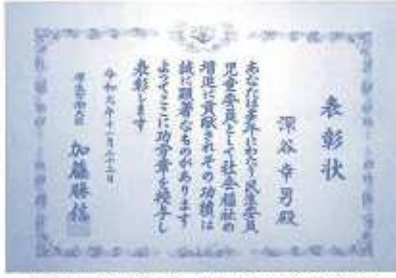 表彰状
深谷幸男殿
あなたは多年にわたり民生委員
児童委員として社会福祉の
増進に貢献されその功績は
誠に顕著なものがあります
よってここに功労章を授与し
表彰します
令和元年十一月二十二日
厚生労働大臣
加藤勝信